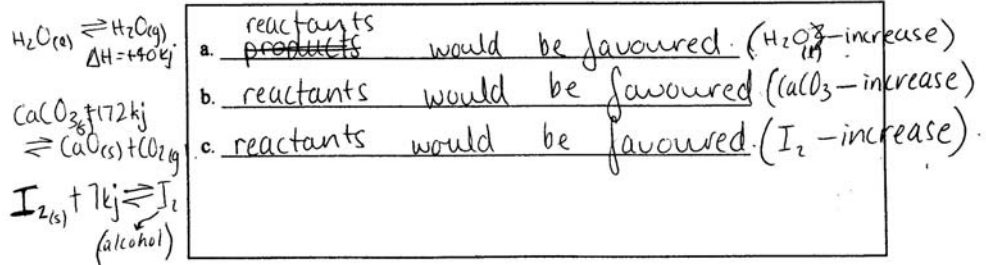 H₂O(l) ⇌ H₂O(g)
ΔH = +40kj
CaCO₃(s) + 172kj
⇌ CaO(s) + CO₂(g)
I₂(s) + 7kj ⇌ I₂
(alcohol)
reactants
a. products would be favoured. (H₂O(l) – increase)
b. reactants would be favoured (CaCO₃ – increase)
c. reactants would be favoured. (I₂ – increase).